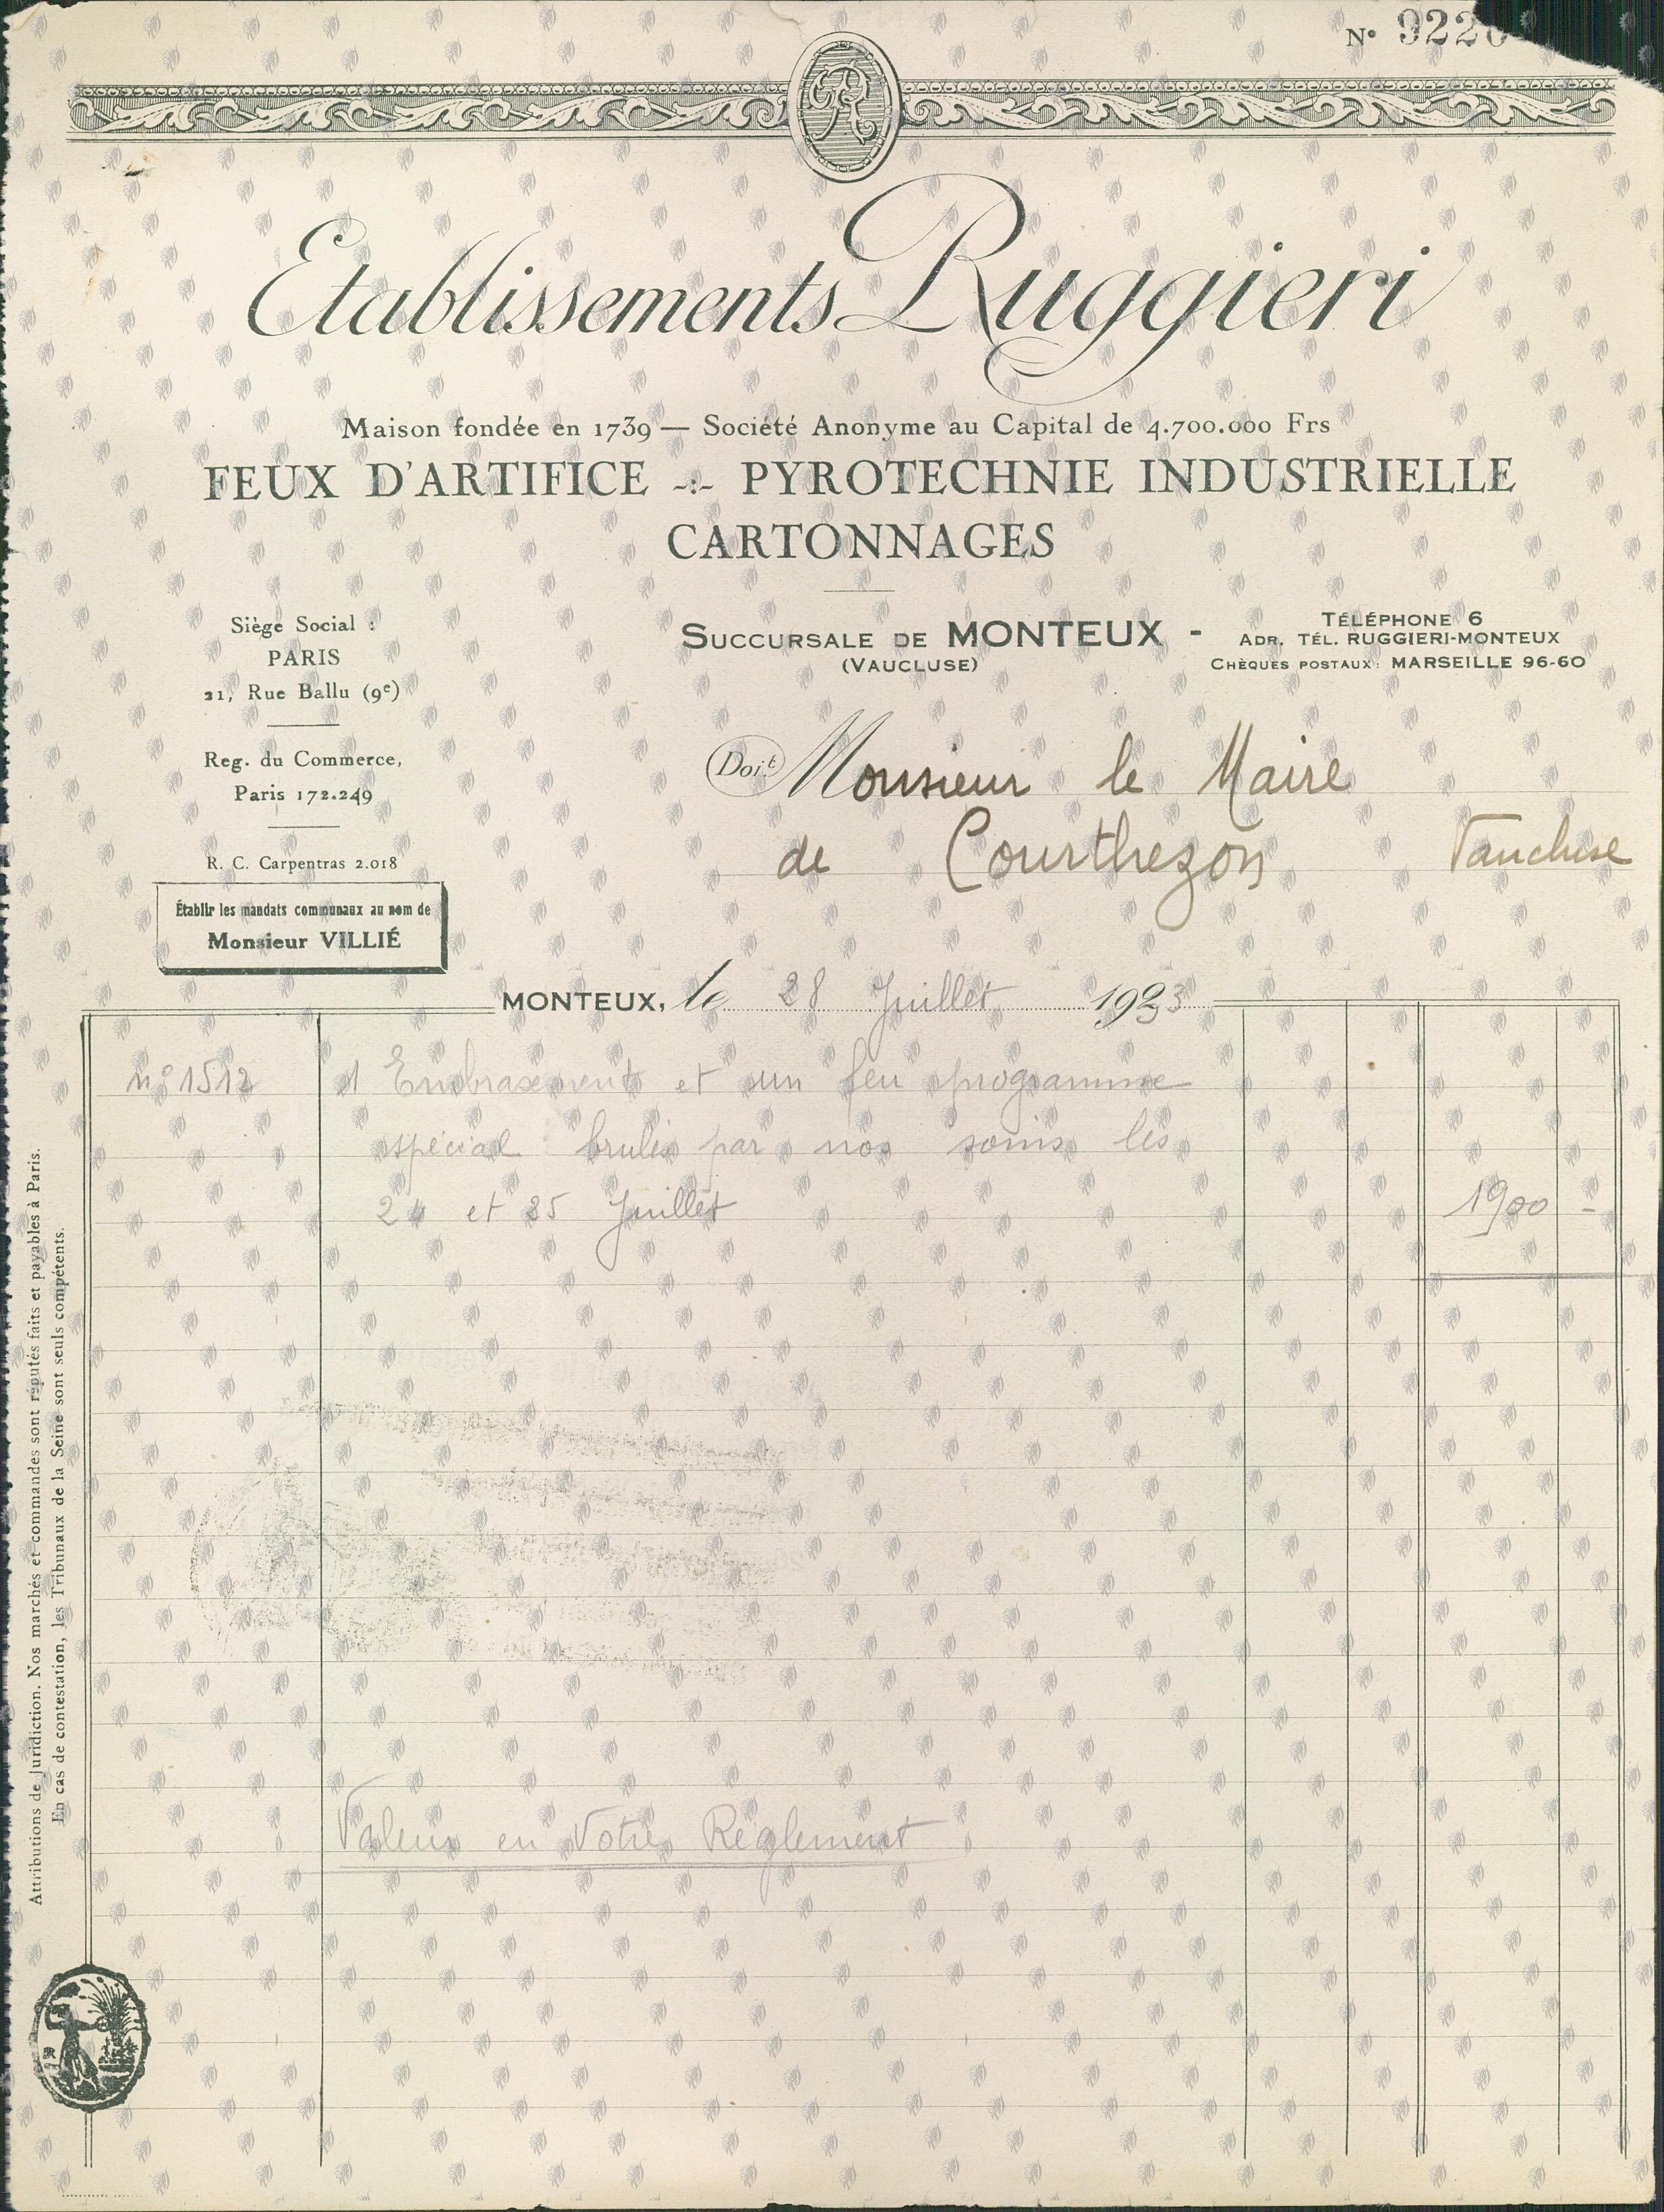 N° 9220
Etablissements Ruggieri
Maison fondée en 1739 — Société Anonyme au Capital de 4.700.000 Frs
FEUX D'ARTIFICE -:- PYROTECHNIE INDUSTRIELLE
CARTONNAGES
Siège Social :
PARIS
21, Rue Ballu (9e)
Reg. du Commerce,
Paris 172.249
R. C. Carpentras 2.018
Établir les mandats communaux au nom de
Monsieur VILLIÉ
SUCCURSALE DE MONTEUX -
(VAUCLUSE)
TÉLÉPHONE 6
ADR. TÉL. RUGGIERI-MONTEUX
CHÈQUES POSTAUX: MARSEILLE 96-60
Doit Monsieur le Maire
de Courthezon Vaucluse
MONTEUX, le 28 Juillet 1933
n° 1512 1 Embrasement et un feu programme
spécial brulés par nos soins les
24 et 25 Juillet 1900 -
Valeur en Votre Règlement
Attributions de Juridiction. Nos marchés et commandes sont réputés faits et payables à Paris.
En cas de contestation, les Tribunaux de la Seine sont seuls compétents.